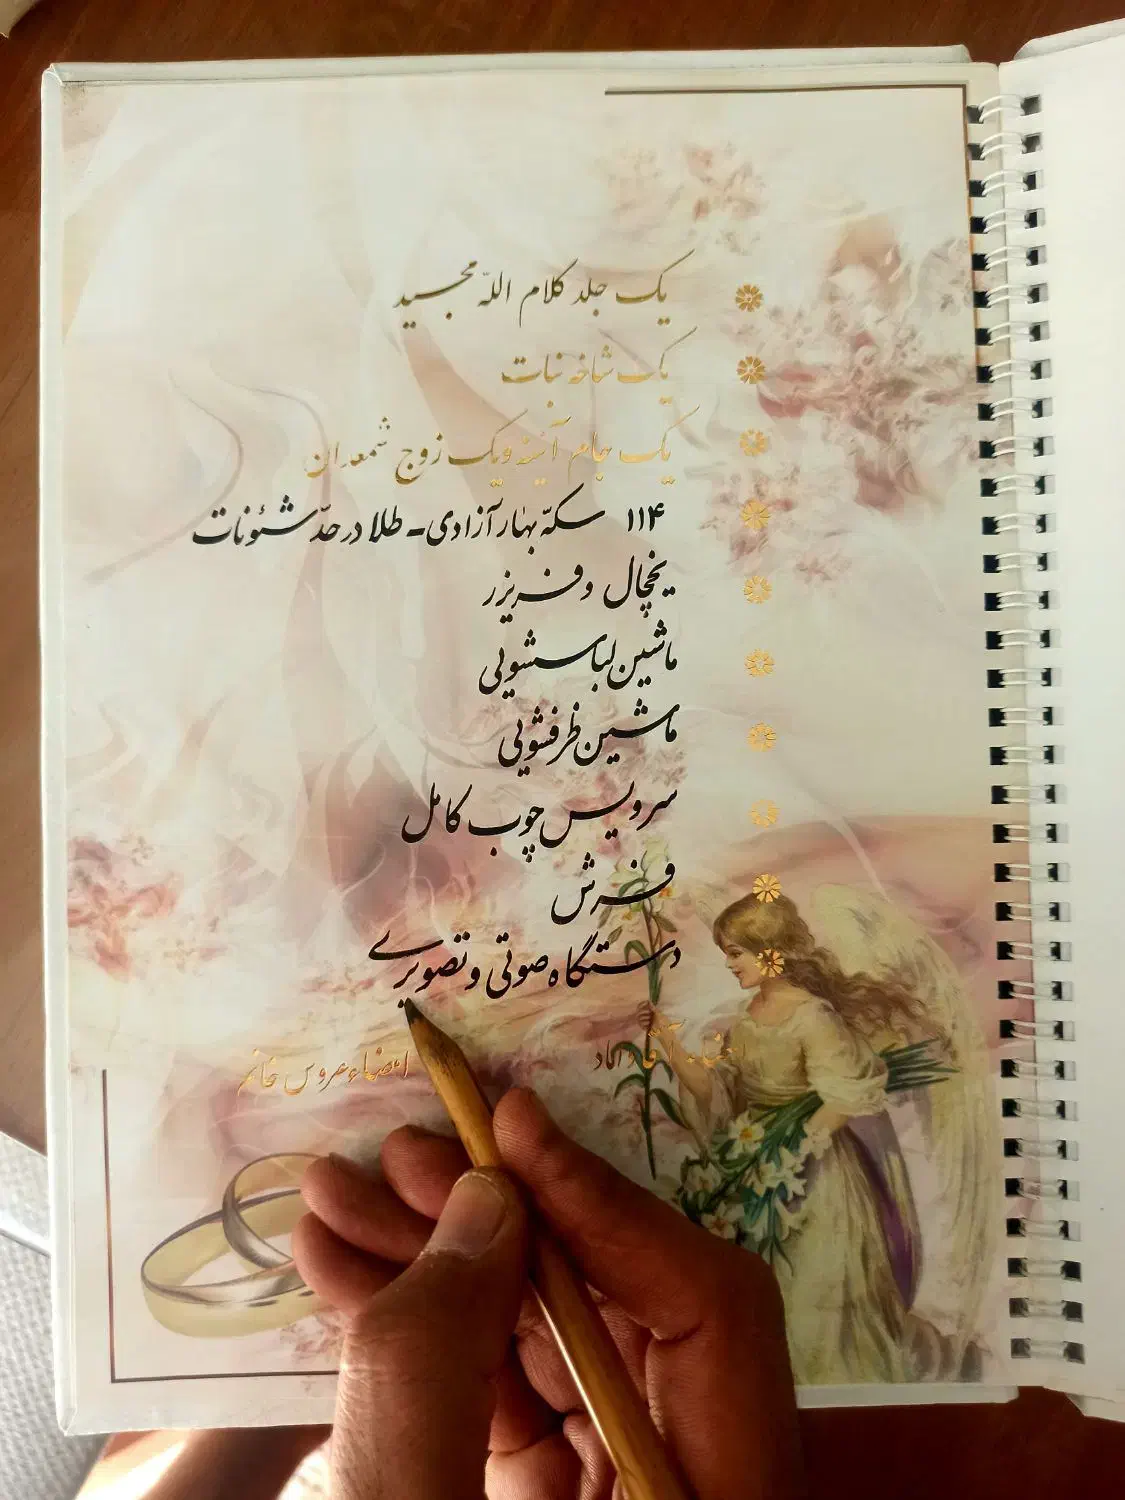 یک جلد کلام اللّه مجید
یک شاخه نبات
یک جام آئینه و یک زوج شمعدان
۱۱۴ سکّه بهار آزادی - طلا در حدّ شئونات
یخچال و فریزر
ماشین لباسشویی
ماشین ظرفشویی
سرویس چوب کامل
فرش
دستگاه صوتی و تصویری
امضاء آقا داماد
امضاء عروس خانم